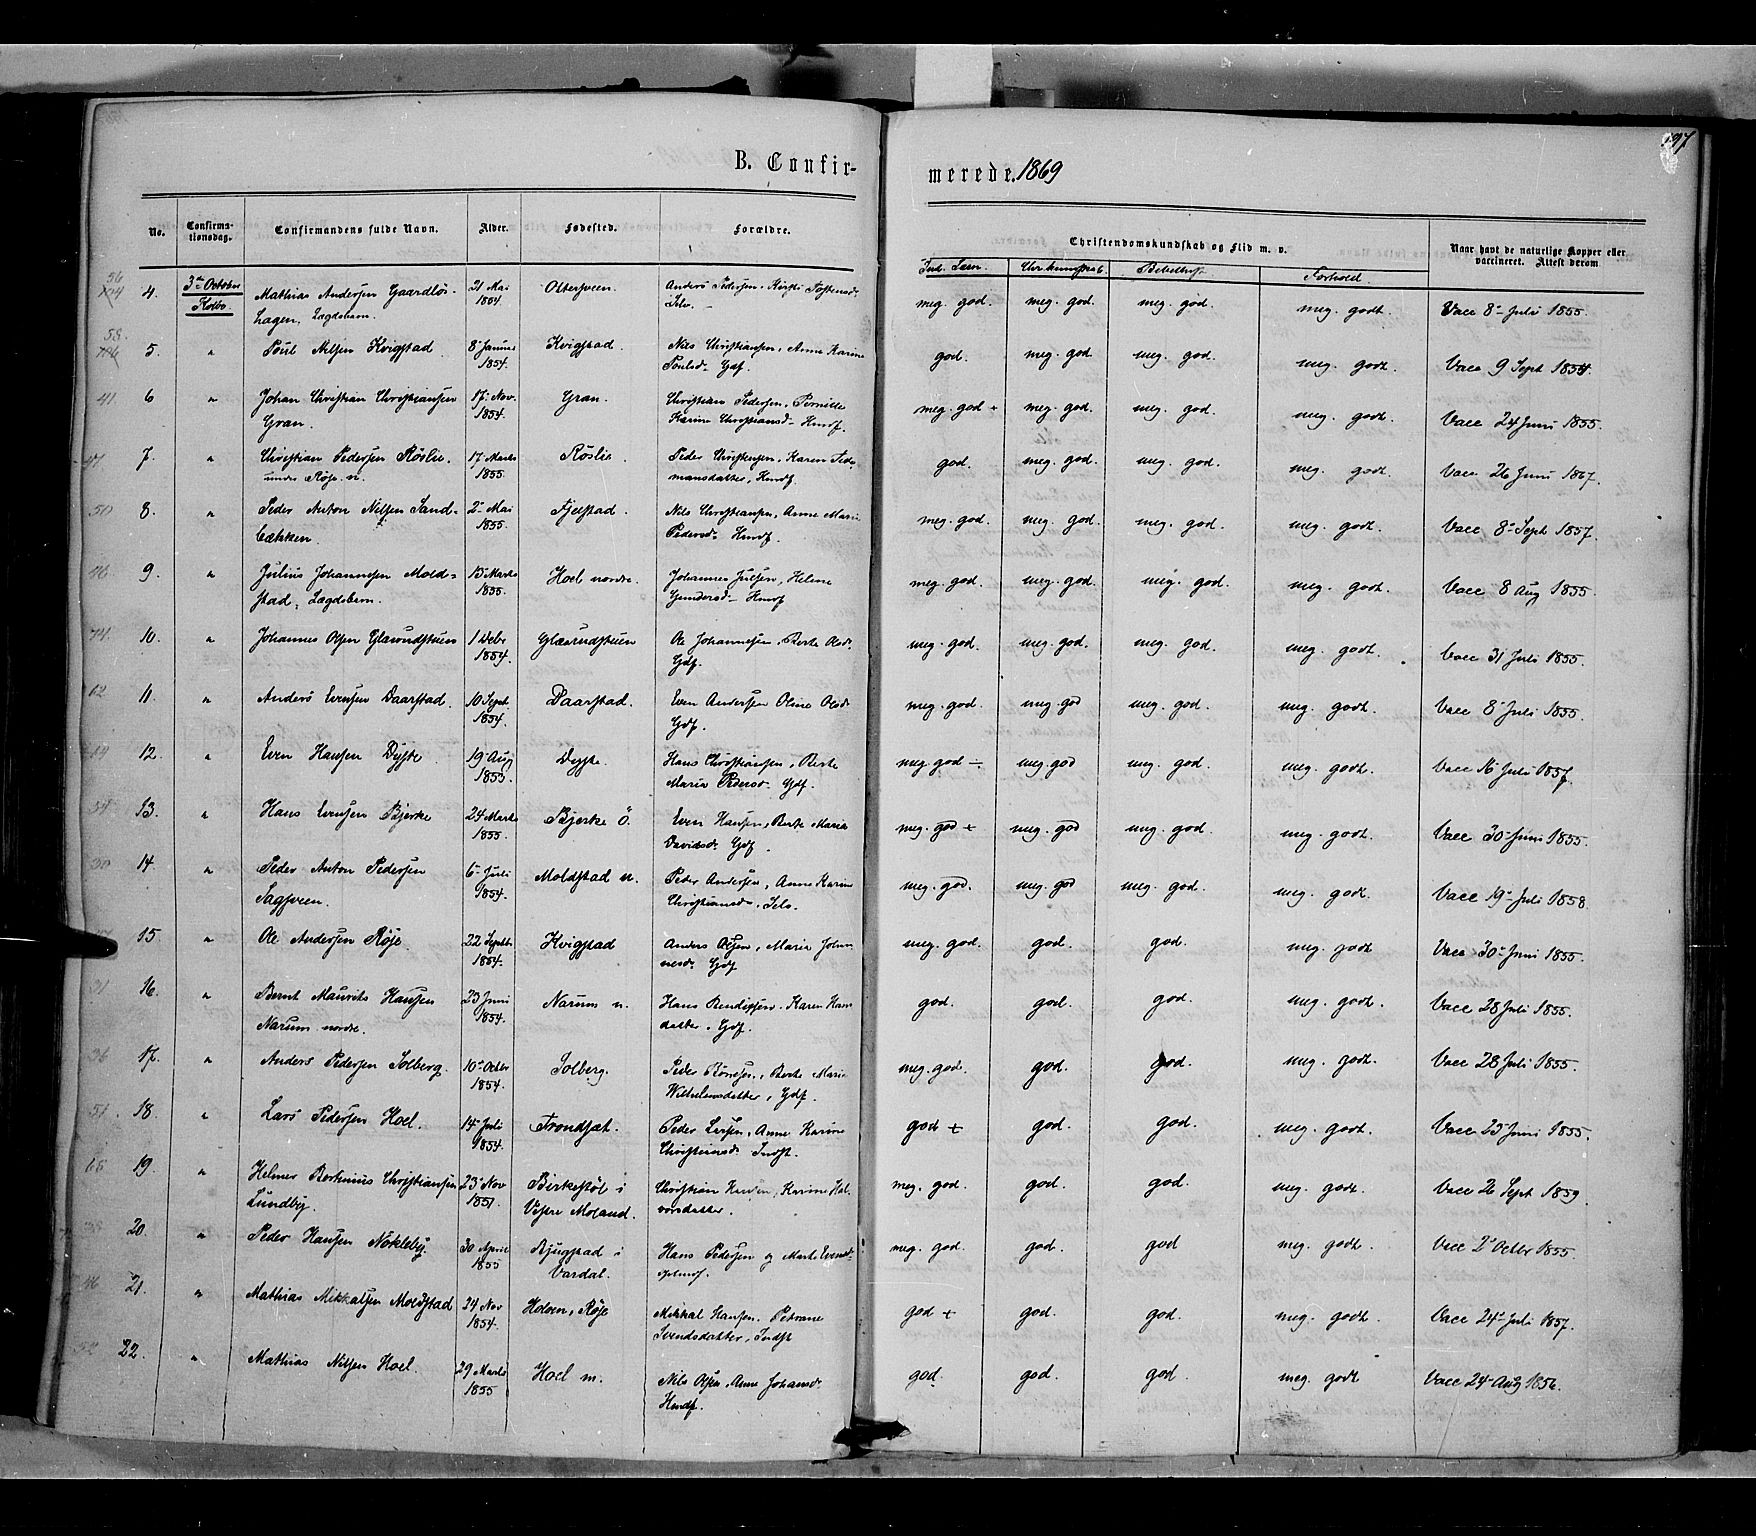 197
B. Confir-
merede. 1869
No.
Confirma-
tionsdag.
Confirmandens fulde Navn.
Alder.
Fødested.
Forældre.
Christendomskundskab og Flid m. v.
Naar havt de naturlige Kopper eller
vaccineret. Attest derom.
Forhold
56
4. 3die October Mathias Andersen Gaardlös- 21 Mai Anders Pedersen, meg. god. meg. god. meg. god. meg. godt. Vacc 8 Juli 1855
hagen, Lægdsbarn. 1854.
58.
5. " Poul Nilsen Kvigstad 8 Januar Kvigstad. Nils Christiansen, Anne Karine god. meg. god. meg. god. meg. godt. Vacc 9 Sept 1854
1854. Poulsd. Gdf.
41. 6 " Johan Christian Christiansen 17. Nov. Gran. Christian Pedersen, Pernille meg. god + meg. god. meg. god. meg. godt. Vacc 24 Juni 1855.
Gran. 1854. Karine Christiansd. Hmdf.
47 7. " Christian Pedersen Röslie. 17 Marts Röslie. Peder Christensen, Karen Tos- god. meg. god. meg. god. meg. godt. Vacc 26 Juni 1867.
under Röise n. 1855. mansdatter, Hmdf.
50 8. " Peder Anton Nilsen Sand- 2 Mai Fjelstad. Nils Christiansen, Anne Marie meg. god. meg. god. meg. god. meg. godt. Vacc 8 Sept 1857.
bækken. 1855. Pedersd. Hmdf.
46 9. " Julius Johannesen Mold- 15 Marts Hoel nordre. Johannes Julsen, Helene meg. god. meg. god. meg. god. meg. godt. Vacc 8 Aug 1855
stad, Lægdsbarn. 1855. Gundersd. Hmdf
74. 10. " Johannes Olsen Glæsrudstuen 1 Debr Glæsrudstuen Ole Johannesen, Berte Olsd. meg. god. meg. god. meg. god. meg. godt. Vacc 31 Juli 1855.
1854. Gdf.
12 11. " Anders Evensen Daarstad. 10 Sept Daarstad. Even Andersen Oline Olsd. meg. god. meg. god meg. god. meg. godt. Vacc 8 Juli 1855.
1854. Gdf.
12. " Even Hansen Dyste 19 Aug Dyste. Hans Christiansen, Berte meg. god ÷ meg. god meg. god. meg. godt. Vacc 16 Juli 1857.
Marie Pedersd. Gdf.
54 13. " Hans Evensen Bjerke 24 Marts Bjerke Ö. Even Hansen, Berte Maria meg. god + meg. god meg. god. meg. godt. Vacc 30 Juni 1855.
1855. Davidsd. Gdf.
30 14. " Peder Anton Pedersen 6 Juli Moldstad n. Peder Andersen, Anne Karine meg. god. meg. god meg. god. meg. godt. Vacc 19 Juli 1858.
Sagsveen. 1854. Christiansd.
15. " Ole Andersen Röise. 22 Septbr Kvigstad Anders Olsen, Maria Johan meg. god. god. god. meg. godt Vacc 30 Juni 1855.
1854. nesd. Gdf
31 16. " Bernt Maurits Hansen 23 Juni Narum n. Hans Bendixsen, Karen Hans god. god. god. meg. godt. Vacc 28 Juli 1855.
Narum nordre. 1854. datter, Gdf.
36 17. " Anders Pedersen Solberg. 10 Octbr Solberg. Peder meg. god. god. god. meg. godt. Vacc 28 Juli 1855.
1854. Wilhelmsdatter, Gdf.
51. 18. " Lars Pedersen Hoel. 14 Juli Trondsæt. Peder Larsen, Anne Karine god + god. god. meg. godt. Vacc 23 Juni 1855.
1854. Christiansd. Indst.
65 19. " Helmer Bertinius Christiansen 23 Nov Birkestöl i Christian Hansen, Karine Hal meg. god. god. god. meg. godt. Vacc 26 Sept 1859.
Lundby. Vestre Moland. vorsdatter.
20. " Peder Hansen Nökleby 30 April i Hans Pedersen og Marte meg. god. god. god meg. godt. Vacc 2 Octbr 1855.
1855 Vardal.
46 21. " Mathias Mikkalsen Moldstad 24 Nov Holoen, Röise Mikkal Hansen, Petrane god + god. god. meg. godt. Vacc 24 Juli 1857.
1854. Svendsdatter, Indst
52 22. " Mathias Nilsen Hoel. 29 Marts Hoel m. Nils Olsen, Anne Johansd. god. god. god. meg. godt Vacc 24 Aug 1856.
1855 Hmdf.